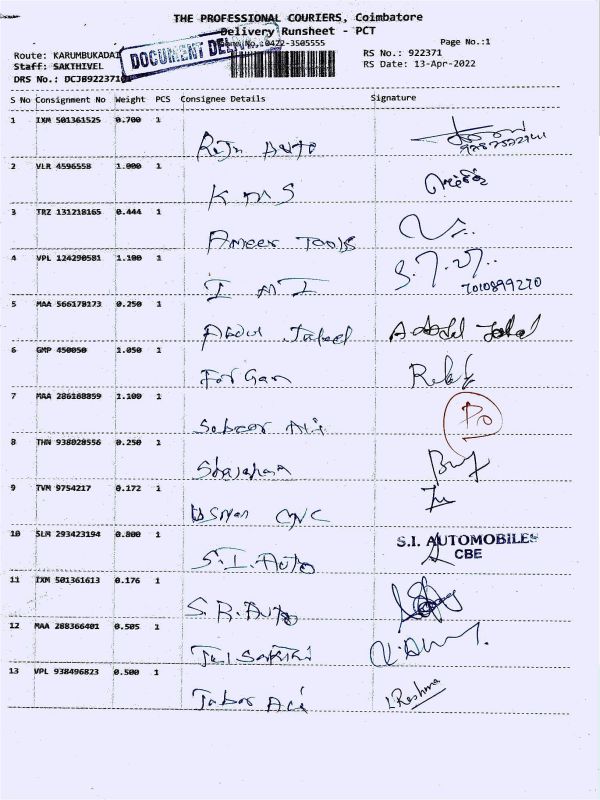 THE PROFESSIONAL COURIERS, Coimbatore
Delivery Runsheet - PCT
Phone No.:0422-3505555
Page No.:1
Route: KARUMBUKADAI
DOCUMENT
RS No.: 922371
Staff: SAKTHIVEL
RS Date: 13-Apr-2022
S No Consignment No Weight PCS Consignee Details Signature
1 IXM 501361525 0.700 1
Raju Auto
2 VLR 4596558 1.000 1
K M S
3 TRZ 131218165 0.444 1
Ameer Tools
4 VPL 124290581 1.100 1
I M I
7010899270
5 MAA 566178173 0.250 1
Abdul Jaleel
6 GMP 450050 1.050 1
For Gan
7 MAA 286168859 1.100 1
8 THN 938028556 0.250 1
9 TVM 9754217 0.172 1
Usman CNC
10 SLM 293423194 0.800 1
S.I. Auto S.I. AUTOMOBILES
CBE
11 IXM 501361613 0.176 1
S.R. Auto
12 MAA 288366401 0.505 1
13 VPL 938496823 0.500 1
L Reshma